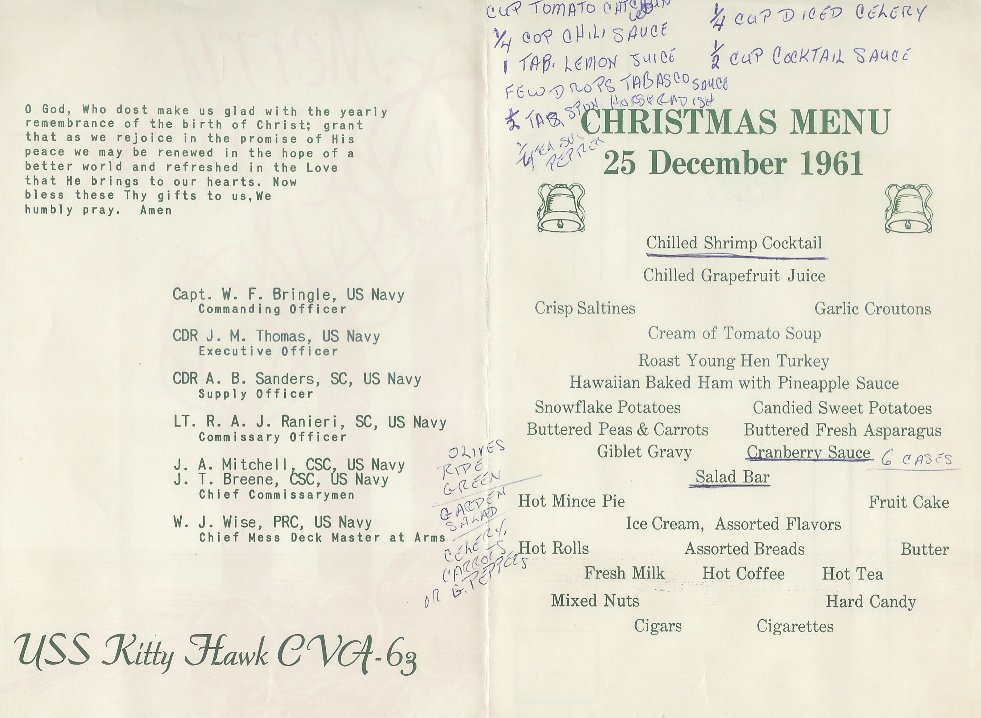 O God, Who dost make us glad with the yearly
remembrance of the birth of Christ; grant
that as we rejoice in the promise of His
peace we may be renewed in the hope of a
better world and refreshed in the Love
that He brings to our hearts. Now
bless these Thy gifts to us,We
humbly pray. Amen
Capt. W. F. Bringle, US Navy
Commanding Officer
CDR J. M. Thomas, US Navy
Executive Officer
CDR A. B. Sanders, SC, US Navy
Supply Officer
LT. R. A. J. Ranieri, SC, US Navy
Commissary Officer
J. A. Mitchell, CSC, US Navy
J. T. Breene, CSC, US Navy
Chief Commissarymen
W. J. Wise, PRC, US Navy
Chief Mess Deck Master at Arms
USS Kitty Hawk CVA-63
CUP TOMATO
1/4 CUP DICED CELERY
1/4 COP CHILI SAUCE
1 TAB. LEMON JUICE
1/2 CUP COCKTAIL SAUCE
FEW DROPS TABASCO SAUCE
1/2 TAB. SPUN HORSERADISH
PEPPER
CHRISTMAS MENU
25 December 1961
Chilled Shrimp Cocktail
Chilled Grapefruit Juice
Crisp Saltines Garlic Croutons
Cream of Tomato Soup
Roast Young Hen Turkey
Hawaiian Baked Ham with Pineapple Sauce
Snowflake Potatoes Candied Sweet Potatoes
Buttered Peas & Carrots Buttered Fresh Asparagus
Giblet Gravy Cranberry Sauce 6 CASES
Salad Bar
OLIVES
RIPE
GREEN
GARDEN
SALAD
CELERY.
CARROTS
OR G. PEPPERS
Hot Mince Pie Fruit Cake
Ice Cream, Assorted Flavors
Hot Rolls Assorted Breads Butter
Fresh Milk Hot Coffee Hot Tea
Mixed Nuts Hard Candy
Cigars Cigarettes